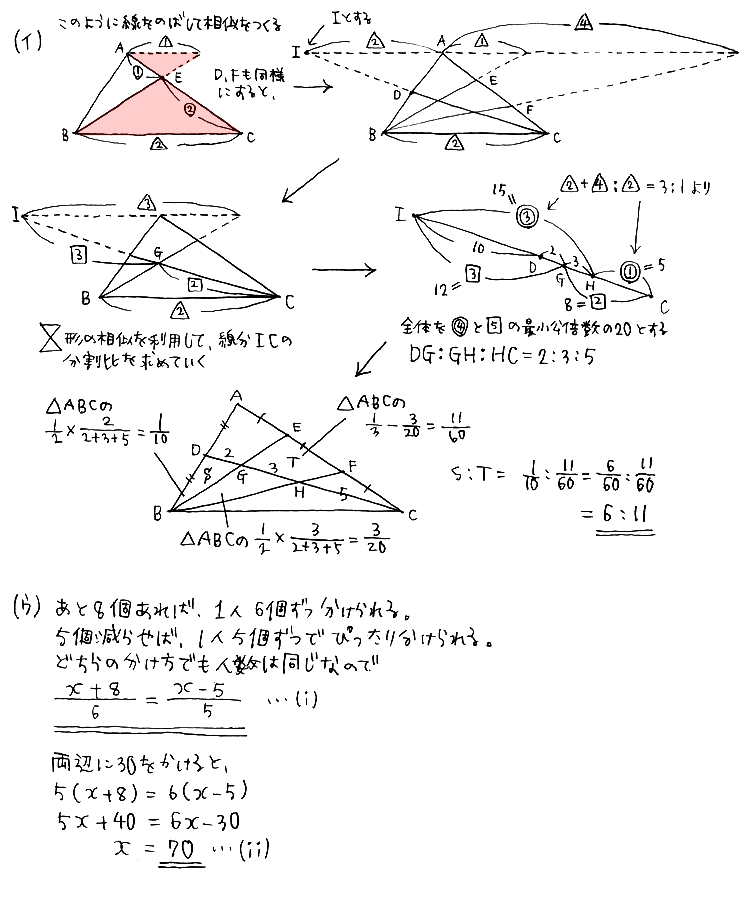 (イ) このように線をのばして相似をつくる
A △1
①
E
②
B △2 C
D,Fも同様
にすると、
Iとする
△4
I △2 A △1
D E F
B △2 C
I △3
3
G
2
B △2 C
△2+△4:△2=3:1より
15=③
I 10 D 2 G 3 H ①=5
12=3
8=2 C
X形の相似を利用して、線分ICの
分割比を求めていく
全体を④と5の最小公倍数の20とする
DG:GH:HC=2:3:5
△ABCの
1/2×2/(2+3+5)=1/10
△ABCの
1/3-3/20=11/60
A
E
D 2 T F
S G 3 H 5
B C
△ABCの1/2×3/(2+3+5)=3/20
S:T=1/10:11/60=6/60:11/60
=6:11
(ウ) あと8個あれば、1人6個ずつ分けられる。
5個減らせば、1人5個ずつでぴったり分けられる。
どちらの分け方でも人数は同じなので
(x+8)/6=(x-5)/5 …(i)
両辺に30をかけると、
5(x+8)=6(x-5)
5x+40=6x-30
x=70 …(ii)